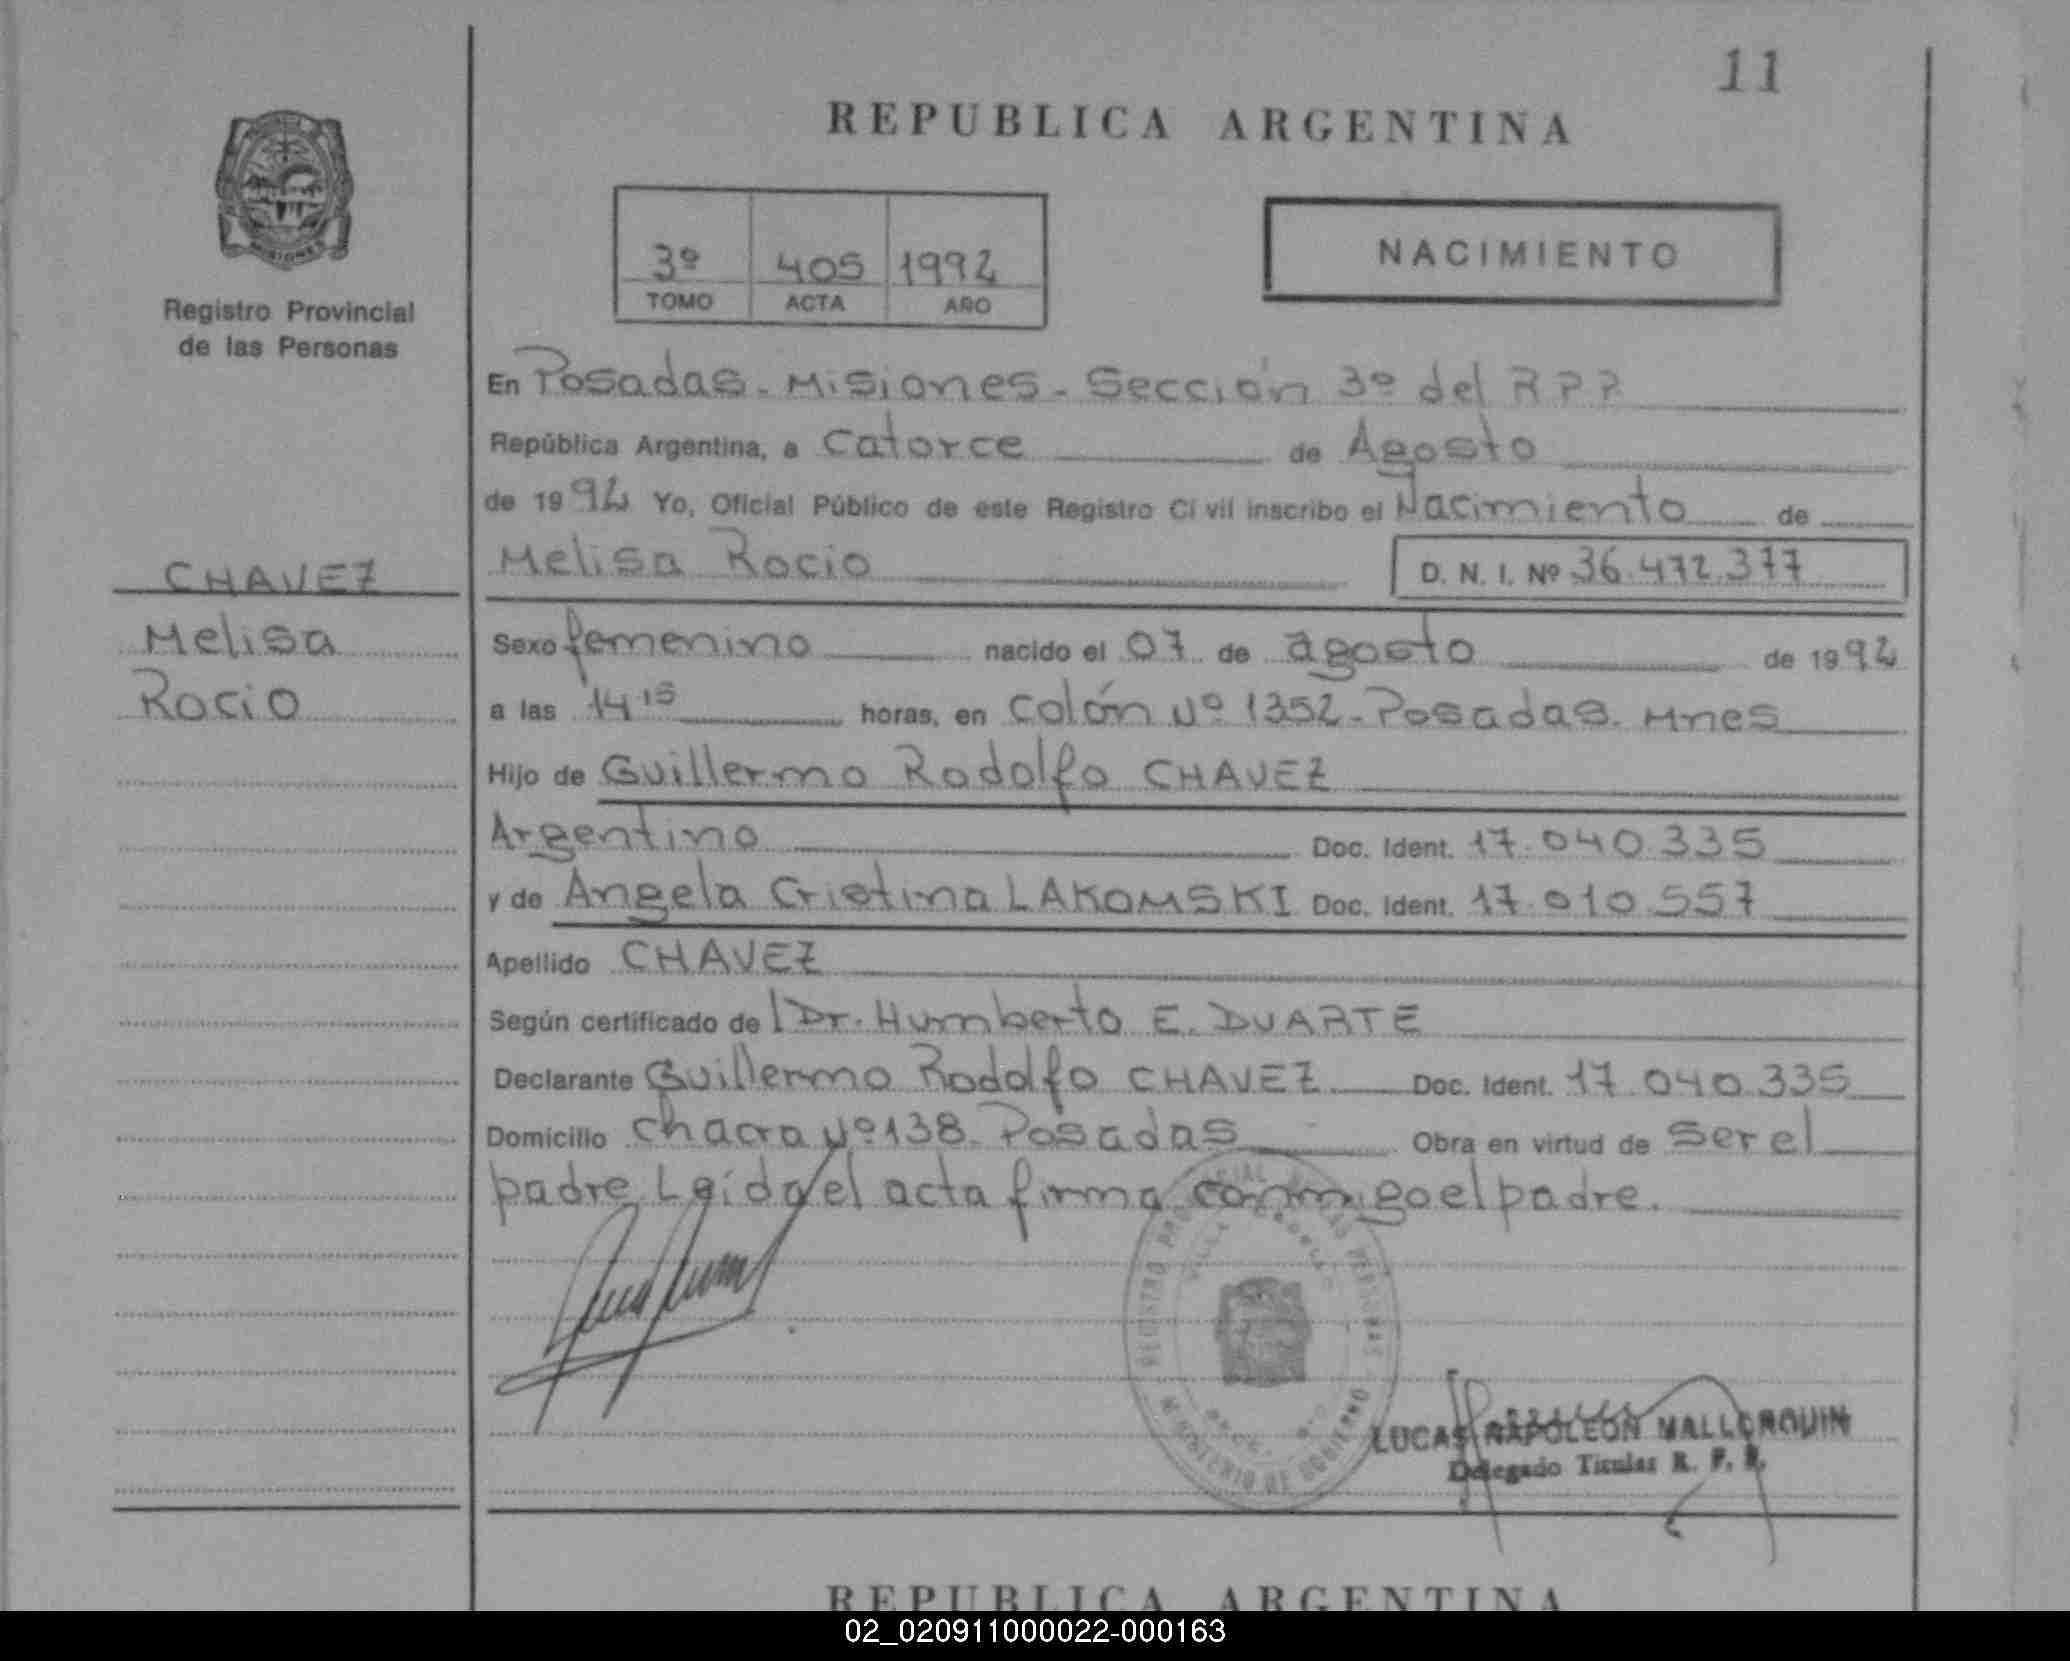 11
REPUBLICA ARGENTINA
Registro Provincial
de las Personas
3º 405 1992
TOMO ACTA AÑO
NACIMIENTO
En Posadas - Misiones - Sección 3º del RPP
República Argentina, a Catorce de Agosto
de 1992 Yo, Oficial Público de este Registro Civil inscribo el Nacimiento de
Melisa Rocio D. N. I. Nº 36.472.377
CHAVEZ
Melisa
Rocio
Sexo femenino nacido el 07 de agosto de 1992
a las 14 15 horas, en Colón Nº 1352 - Posadas. Mnes
Hijo de Guillermo Rodolfo CHAVEZ
Argentino Doc. Ident. 17.040.335
y de Angela Cristina LAKOMSKI Doc. Ident. 17.010.557
Apellido CHAVEZ
Según certificado del Dr. Humberto E. DUARTE
Declarante Guillermo Rodolfo CHAVEZ Doc. Ident. 17.040.335
Domicilio chacra Nº 138 - Posadas Obra en virtud de ser el
padre. Leída el acta firma conmigo el padre.
REGISTRO PROVINCIAL DE LAS PERSONAS
MINISTERIO DE GOBIERNO
LUCAS NAPOLEON MALLORQUIN
Delegado Titular R. P. P.
REPUBLICA ARGENTINA
02_020911000022-000163